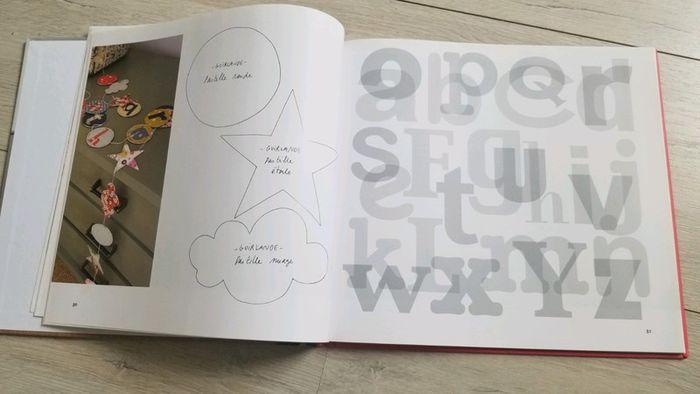 - GUIRLANDE -
Pastille ronde
- GUIRLANDE
Pastille
étoile
- GUIRLANDE -
Pastille nuage
o p q r
a b c d
s F g u h i j
e t v
k l m n
w x Y z
30
31